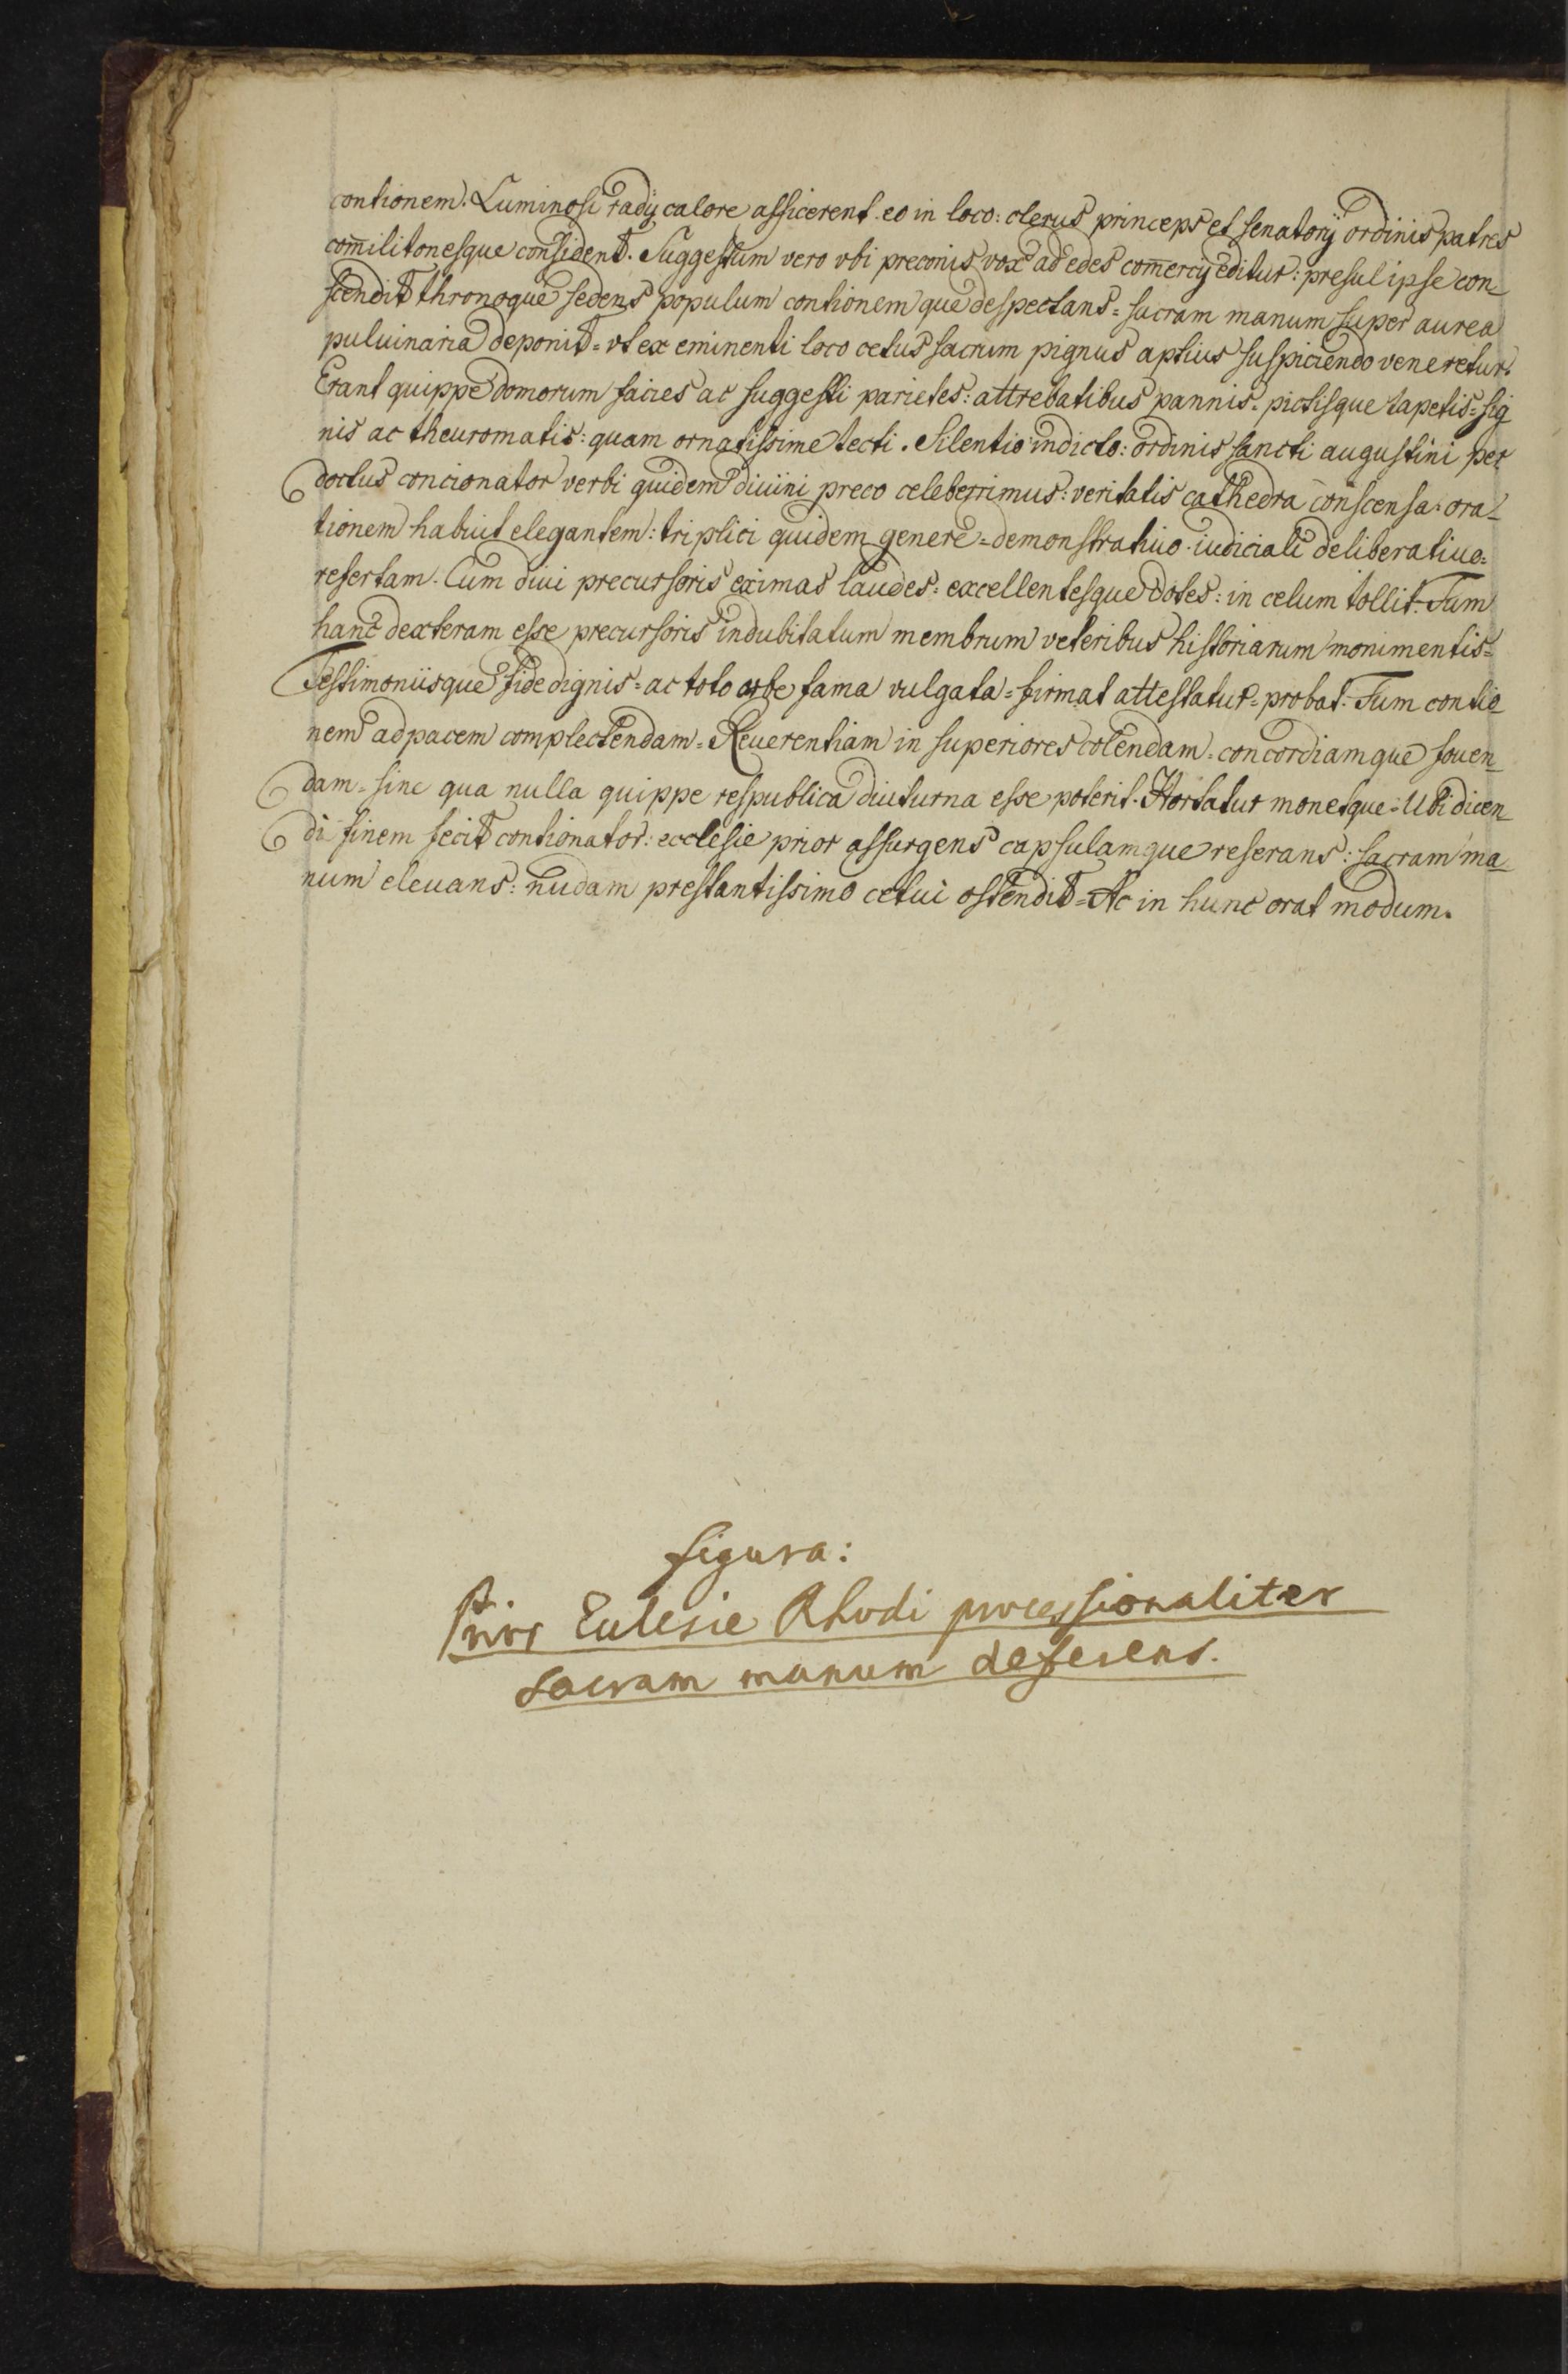 contionem. Luminosi radij calore afficerent. eo in loco: clerus princeps et senatorij ordinis patres
com̄ilitonesque consident. Suggestum vero vbi preconis vox ad edes com̄ercij editur: presul ipse con_
scendit thronoque sedens populum contionem que despectans = sacram manum super aurea
puluinaria deponit = vt ex eminenti loco cetus sacrum pignus aptius suspiciendo veneretur.
Erant quippe domorum facies ac suggesti parietes: attrebatibus pannis. pictisque tapetis = sig
nis ac theuromatis: quam ornatissime tecti. Silentio indicto: ordinis sancti augustini per
doctus concionator verbi quidem diuini preco celeberrimus: veritatis cathedra conscensa: ora_
tionem habuit elegantem: triplici quidem genere = demonstratiuo. iudiciali deliberatiuo =
refertam. Cum diui precursoris eximas laudes: excellentesque dotes: in celum tollit. Tum
hanc dexteram esse precursoris indubitatum membrum veteribus historiarum monimentis =
Testimoniisque fide dignis = ac toto orbe fama vulgata = firmat attestatur = probat. Tum contio_
nem ad pacem complectendam = Reuerentiam in superiores colendam = concordiamque fouen_
dam = sine qua nulla quippe respublica diuturna esse poterit. Hortatur monetque = Ubi dicen_
di finem fecit contionator: ecclesie prior assurgens capsulamque reserans: sacram ma_
num eleuans: nudam prestantissimo cetui ostendit = Ac in hunc orat modum.
figura:
Prior Eclesie Rhodi processionaliter
sacram manum deferens.